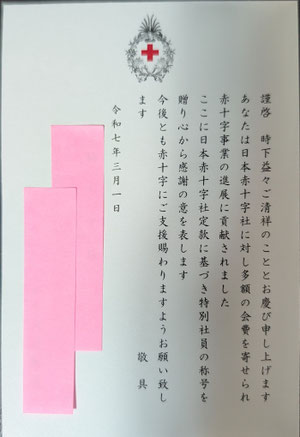 謹啓　時下益々ご清祥のこととお慶び申し上げます
あなたは日本赤十字社に対し多額の会費を寄せられ
赤十字事業の進展に貢献されました
ここに日本赤十字社定款に基づき特別社員の称号を
贈り心から感謝の意を表します
今後とも赤十字にご支援賜わりますようお願い致し
ます
敬具
令和七年三月一日